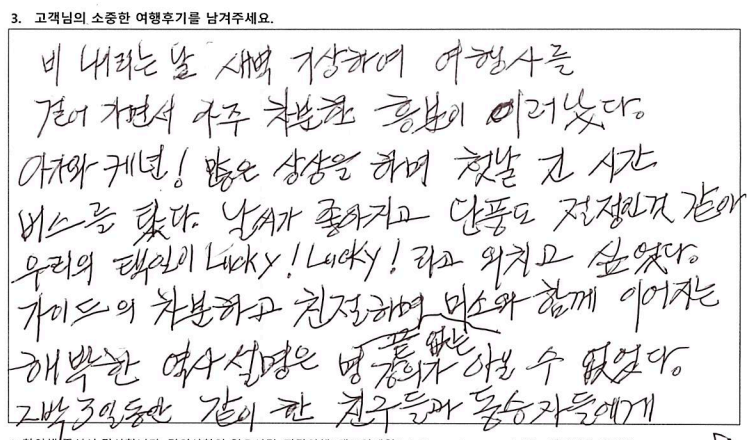 3. 고객님의 소중한 여행후기를 남겨주세요.
비 내리는 날 새벽 기상하여 여행사를
걸어 가면서 아주 차분한 흥분이 이러났다.
아카와 케년! 많은 상상을 하며 첫날 긴 시간
버스를 탔다. 날씨가 좋아지고 단풍도 절정인것 같아
우리의 택일이 Lucky! Lucky! 라고 외치고 싶었다.
가이드의 차분하고 친절하며 미소와 함께 이어지는
끝 없는
해박한 역사 설명은 명 강의가 아닐 수 없었다.
2박 3일동안 같이 한 친구들과 동승자들에게